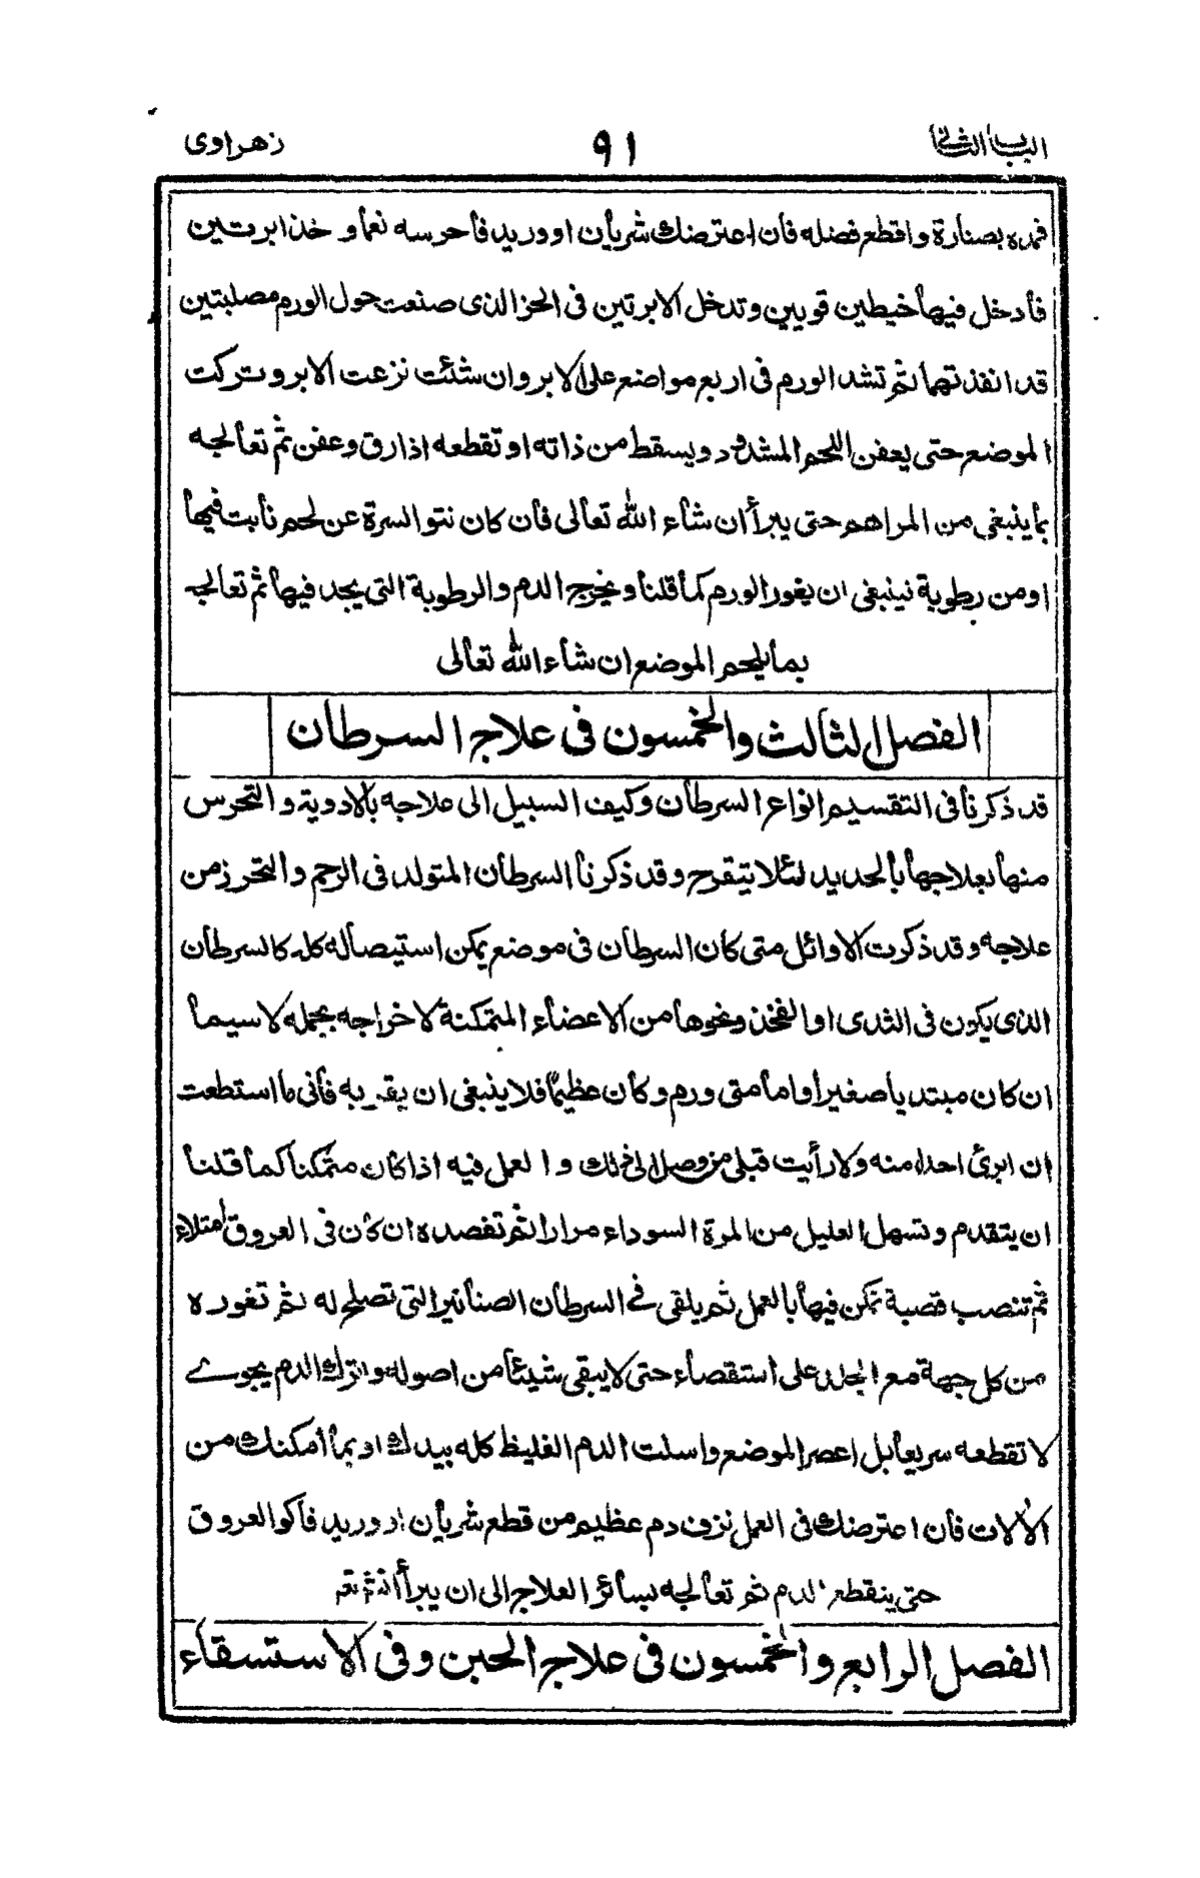 الباب الثانى
٩١
زهراوى
فمده بصنارة واقطع فضله فأن اعترضك شريأن اووريد فأحرسه نعمأ و خذ ابرتين
فأدخل فيهأ خيطين قويين وتدخل الابرتين فى الحز الذى صنعت حول الورم مصلبتين
قد انفذتهمأ ثم تشد الورم فى اربع مواضع على الابر وان شئت نزعت الابر وتركت
الموضع حتى يعفن اللحم المشدود ويسقط من ذاته او تقطعه اذا رق وعفن ثم تعألجه
بمأ ينبغى من المراهم حتى يبرأ ان شأء الله تعألى فأن كان نتو السرة عن لحم نأبت فيهأ
اومن رطوبة نينبغى ان يغور الورم كمأ قلنأ ويخرج الدم والرطوبة التى يجد فيهأ ثم تعألجه
بمأ يلحم الموضع ان شأء الله تعألى
الفصل الثألث والخمسون فى علاج السرطأن
قد ذكرنأ فى التقسيم انواع السرطأن وكيف السبيل الى علاجه بألادوية والتحرس
منهأ بعلاجهأ بألحديد لئلا يتقرح وقد ذكرنأ السرطأن المتولد فى الرحم والتحرز من
علاجه وقد ذكرت الاوائل متى كأن السرطأن فى موضع يمكن استيصأله كله كالسرطأن
الذى يكون فى الثدى او الفخذ ونحوهأ من الاعضأء المتمكنة لاخراجه بجمله لاسيمأ
ان كان مبتديأ صغيرأ وامأ متى ورم وكأن عظيمأ فلا ينبغى ان يقربه فأنى مأ استطعت
ان ابرئ احدا منه ولا رأيت قبلى من وصل الى ذلك و العمل فيه اذا كان متمكنأ كمأ قلنأ
ان يتقدم وتسهل العليل من المرة السوداء مرارا ثم تفصده ان كأن فى العروق امتلاء
ثم تنصب قصبة تمكن فيهأ بألعمل ثم يلقى فى السرطأن الصنأنير التى تصلح له ثم تغوره
من كل جهة مع الجلد على استقصأء حتى لايبقى شيئأ من اصوله واترك الدم يجرى
لا تقطعه سريعأ بل اعصر الموضع واسلت الدم الغليظ كله بيدك او بمأ أمكنك من
الألات فأن اعترضك فى العمل نزف دم عظيم من قطع شريأن اووريد فأكو العروق
حتى ينقطع الدم ثم تعألجه بسأئر العلاج الى ان يبرأ
الفصل الرابع والخمسون فى علاج الحبن وفى الاستسقأء